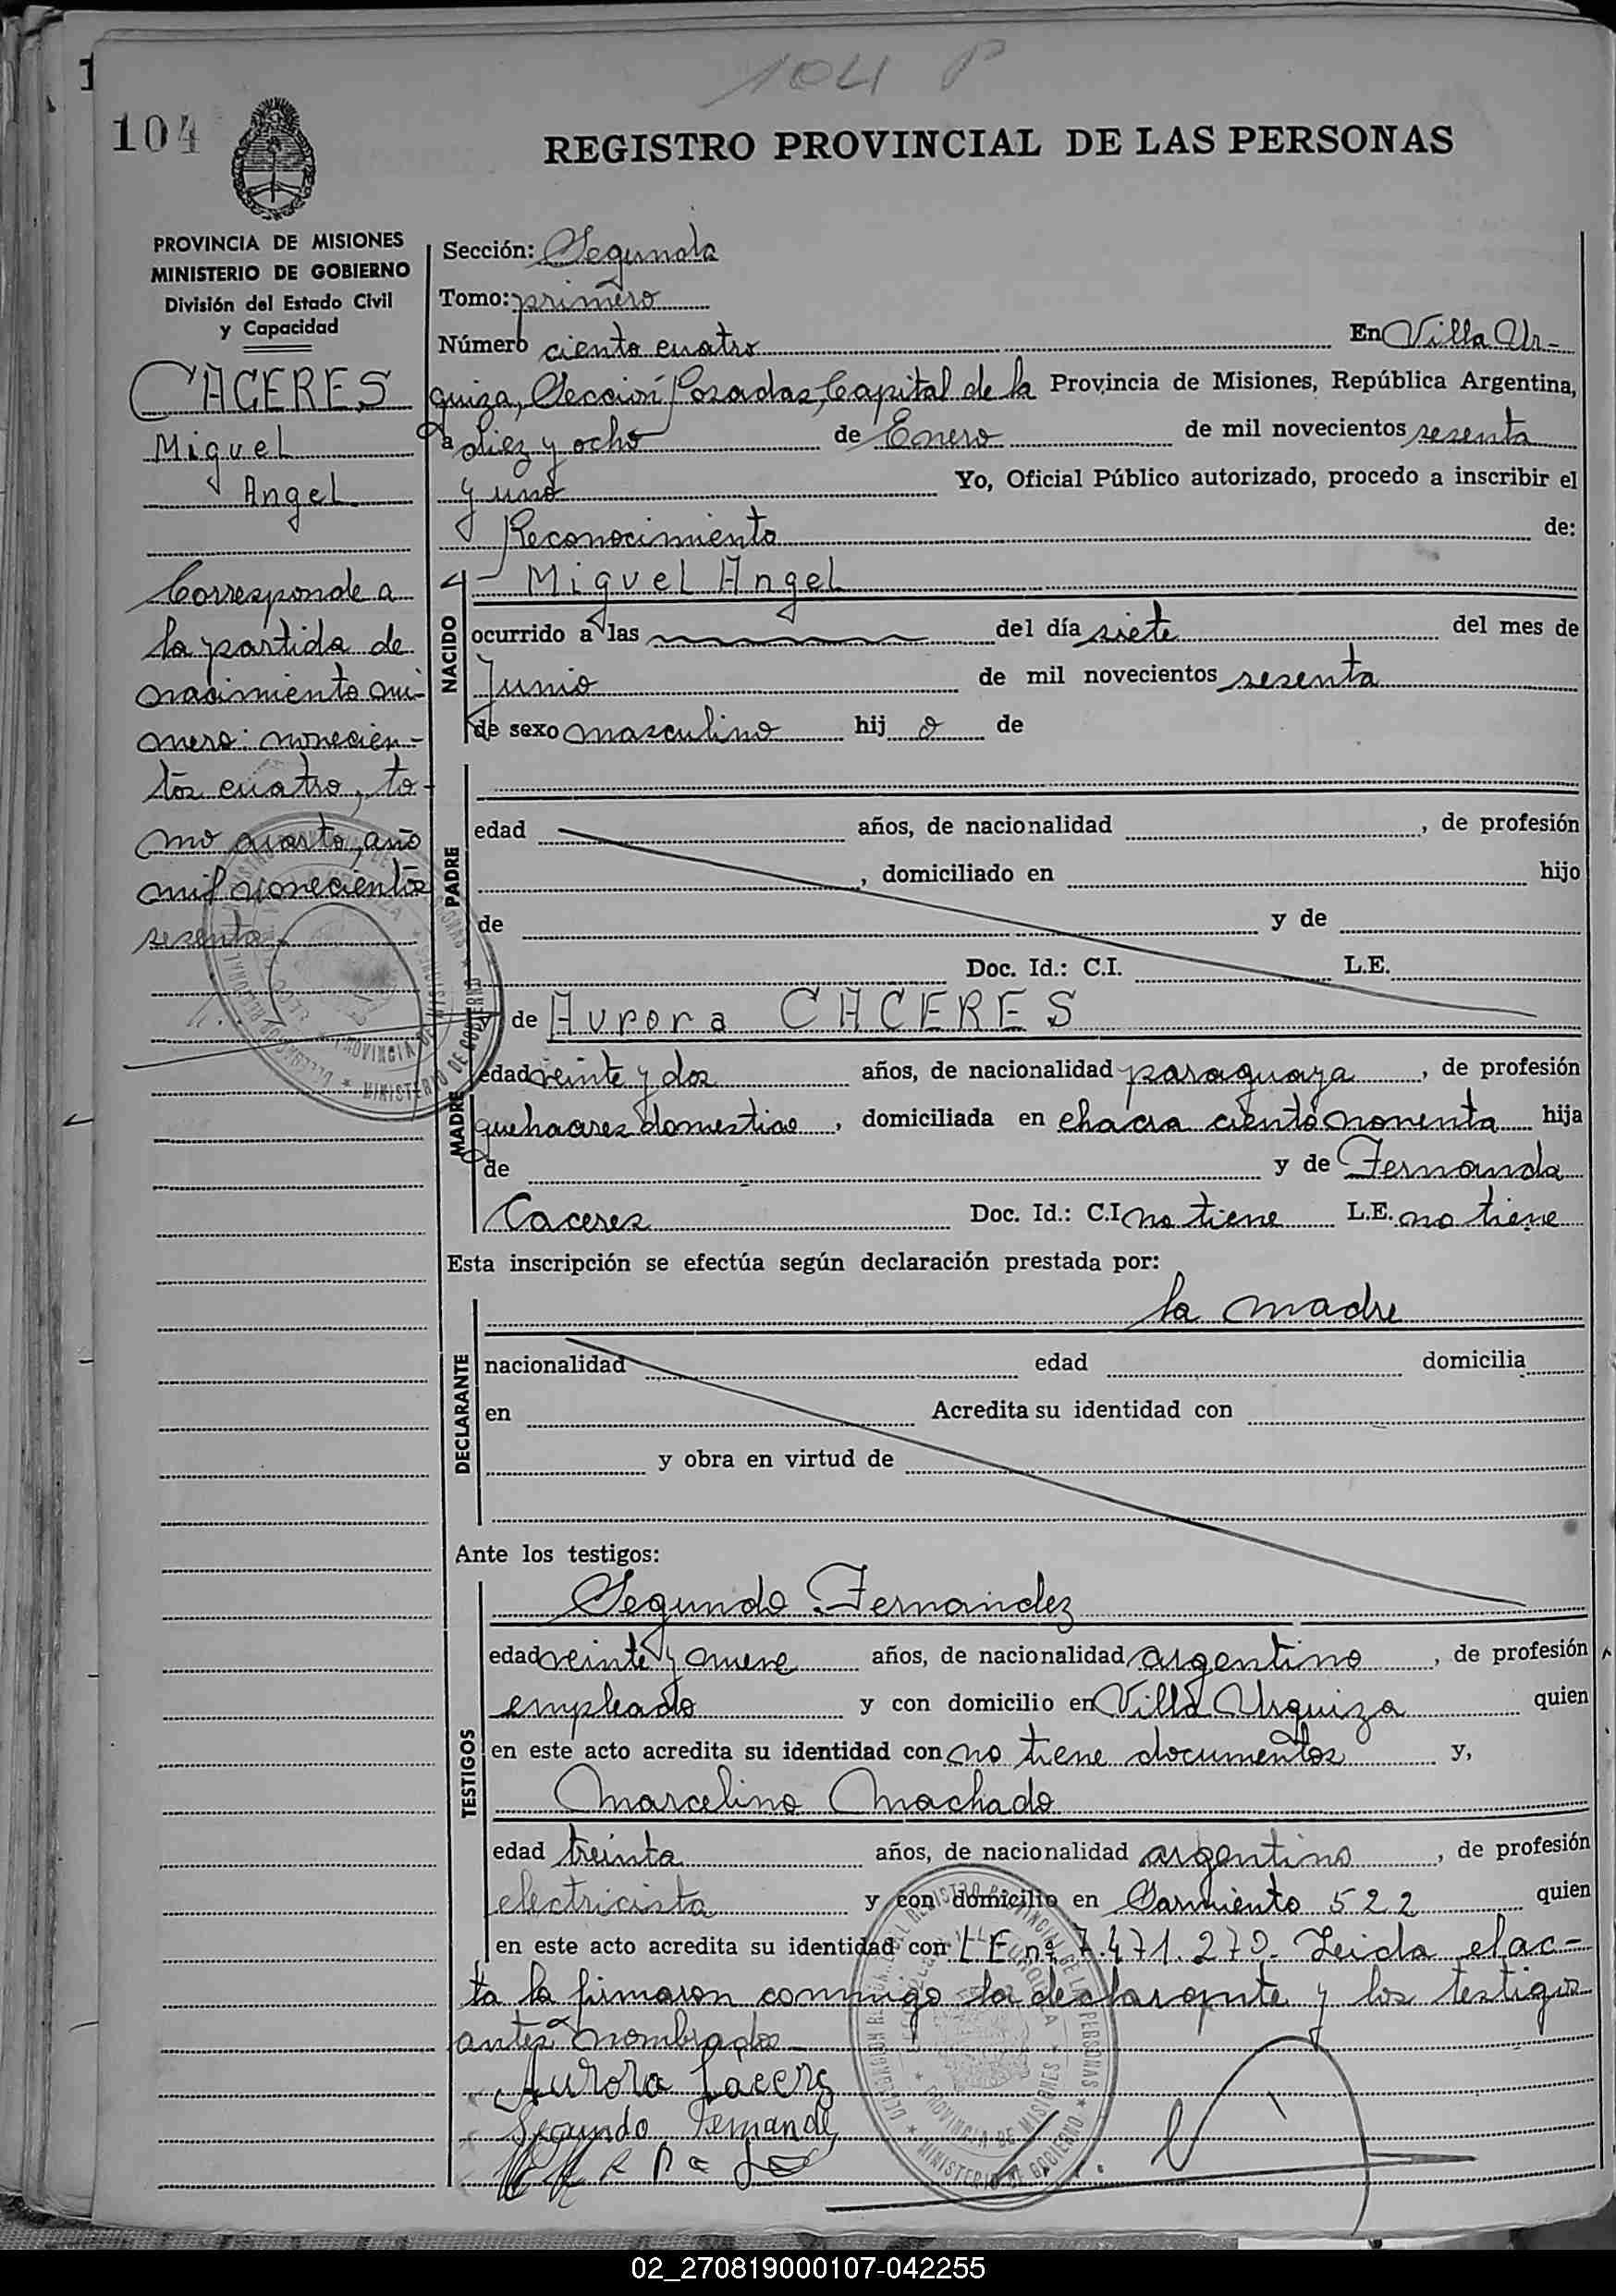 104 P
104
REGISTRO PROVINCIAL DE LAS PERSONAS
PROVINCIA DE MISIONES
MINISTERIO DE GOBIERNO
División del Estado Civil
y Capacidad
CACERES
Miguel
Angel
Corresponde a
la partida de
nacimiento nú-
mero: novecien-
tos cuatro, to-
mo cuarto, año
mil novecientos
sesenta.
Sección: Segunda
Tomo: primero
Número ciento cuatro En Villa Ur-
quiza, Sección Posadas, Capital de la Provincia de Misiones, República Argentina,
a diez y ocho de Enero de mil novecientos sesenta
y uno Yo, Oficial Público autorizado, procedo a inscribir el
Reconocimiento de:
Miguel Angel
NACIDO
ocurrido a las del día siete del mes de
Junio de mil novecientos sesenta
de sexo masculino hij o de
PADRE
edad años, de nacionalidad , de profesión
, domiciliado en hijo
de y de
Doc. Id.: C.I. L.E.
MADRE
y de Aurora CACERES
edad veinte y dos años, de nacionalidad paraguaya , de profesión
quehaceres domestico , domiciliada en chacra ciento noventa hija
de y de Fernanda
Caceres Doc. Id.: C.I. no tiene L.E. no tiene
Esta inscripción se efectúa según declaración prestada por:
la madre
DECLARANTE
nacionalidad edad domicilia
en Acredita su identidad con
y obra en virtud de
Ante los testigos:
TESTIGOS
Segundo Fernandez
edad veinte y nueve años, de nacionalidad argentino , de profesión
empleado y con domicilio en Villa Urquiza quien
en este acto acredita su identidad con no tiene documentos y,
Marcelino Machado
edad treinta años, de nacionalidad argentino , de profesión
electricista y con domicilio en Sarmiento 522 quien
en este acto acredita su identidad con L E nº 7.471.279. Leida el ac-
ta la firmaron conmigo la declarante y los testigos
antes nombrados
Aurora Cacers
Segundo Fernandez
02_270819000107-042255